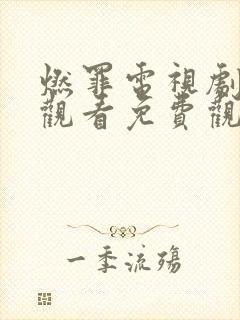 燃罪電視劇
觀看免費觀
一季流殤